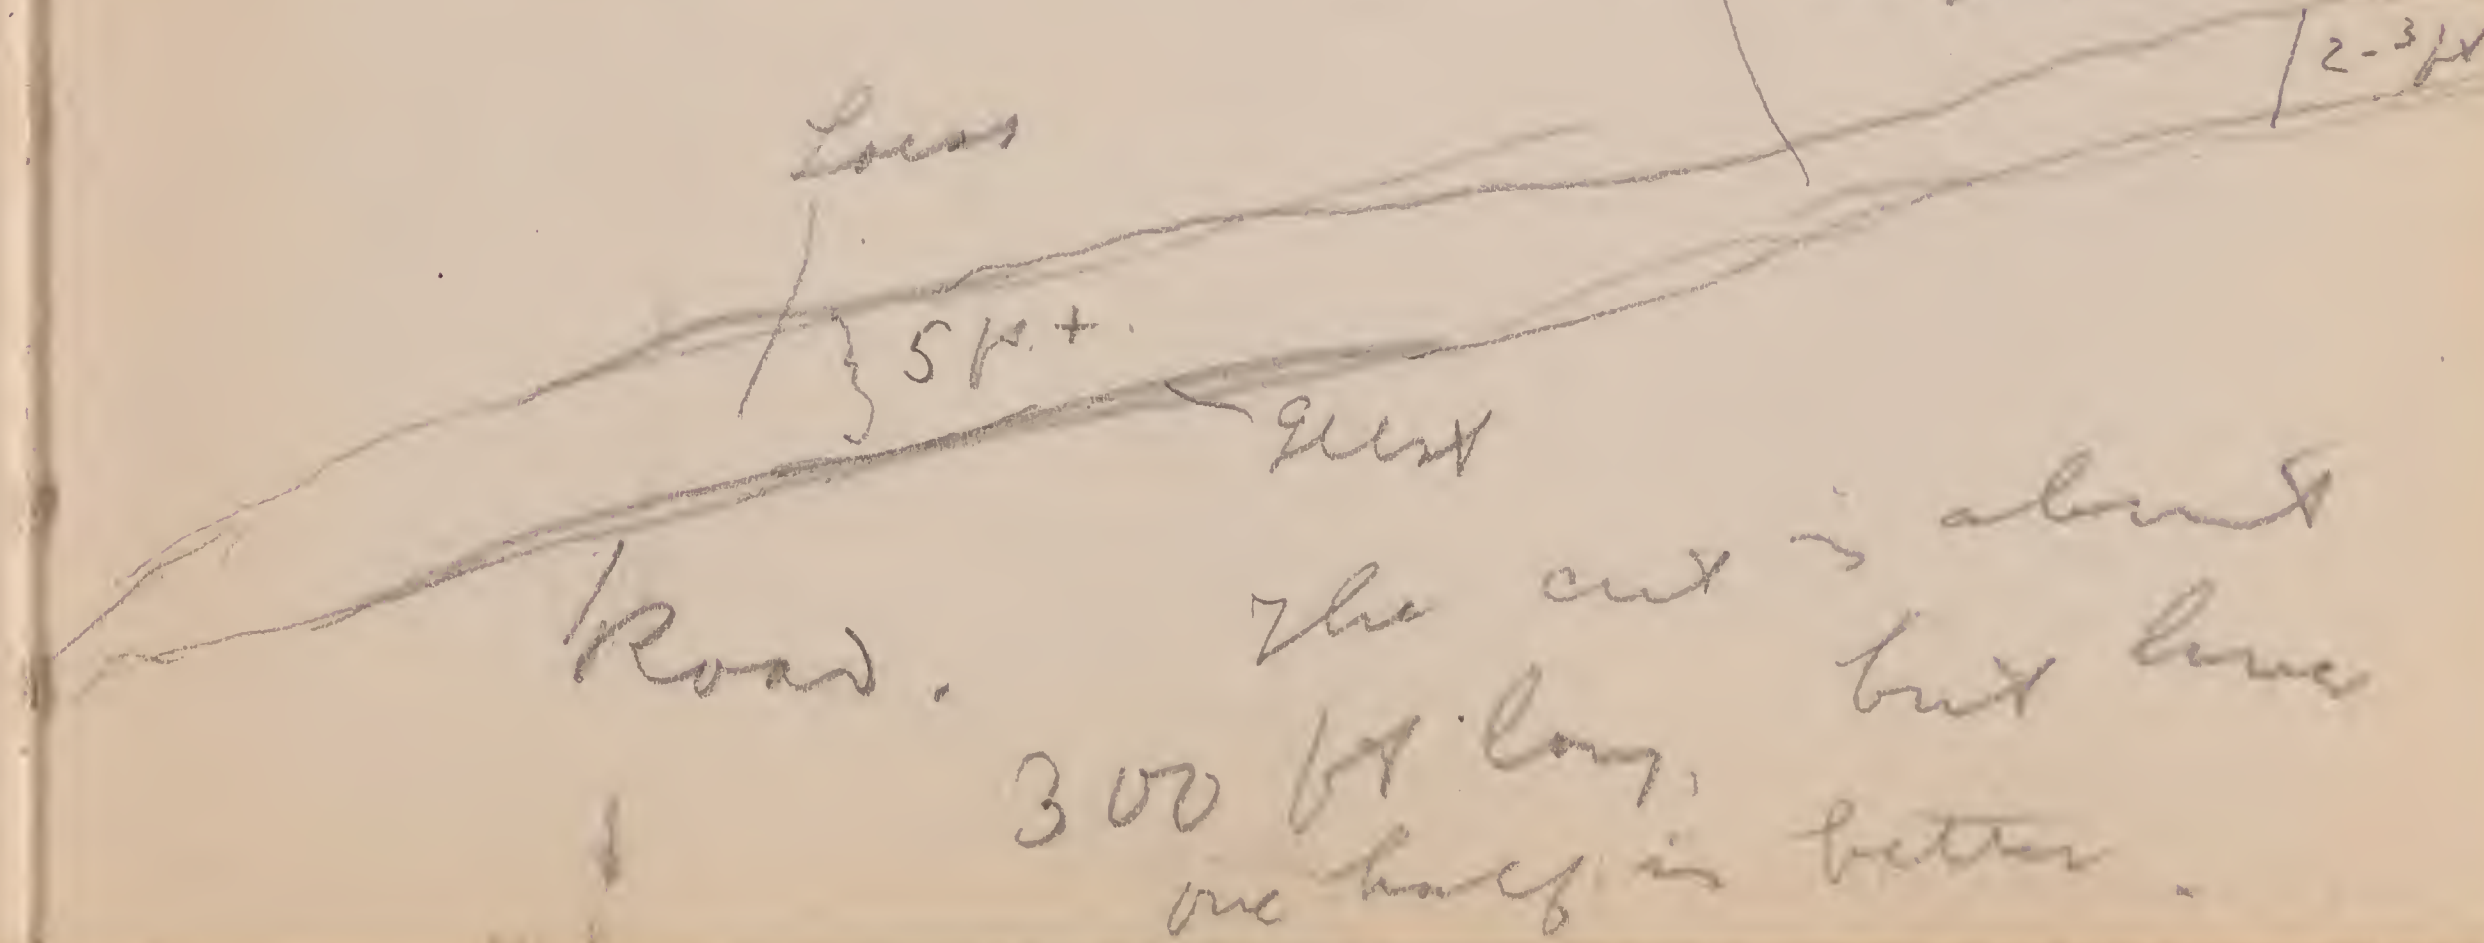 2-3 ft
Loess
5 ft. +
geest
Road.
The cut is about
300 ft. long, but lower
one half is better.